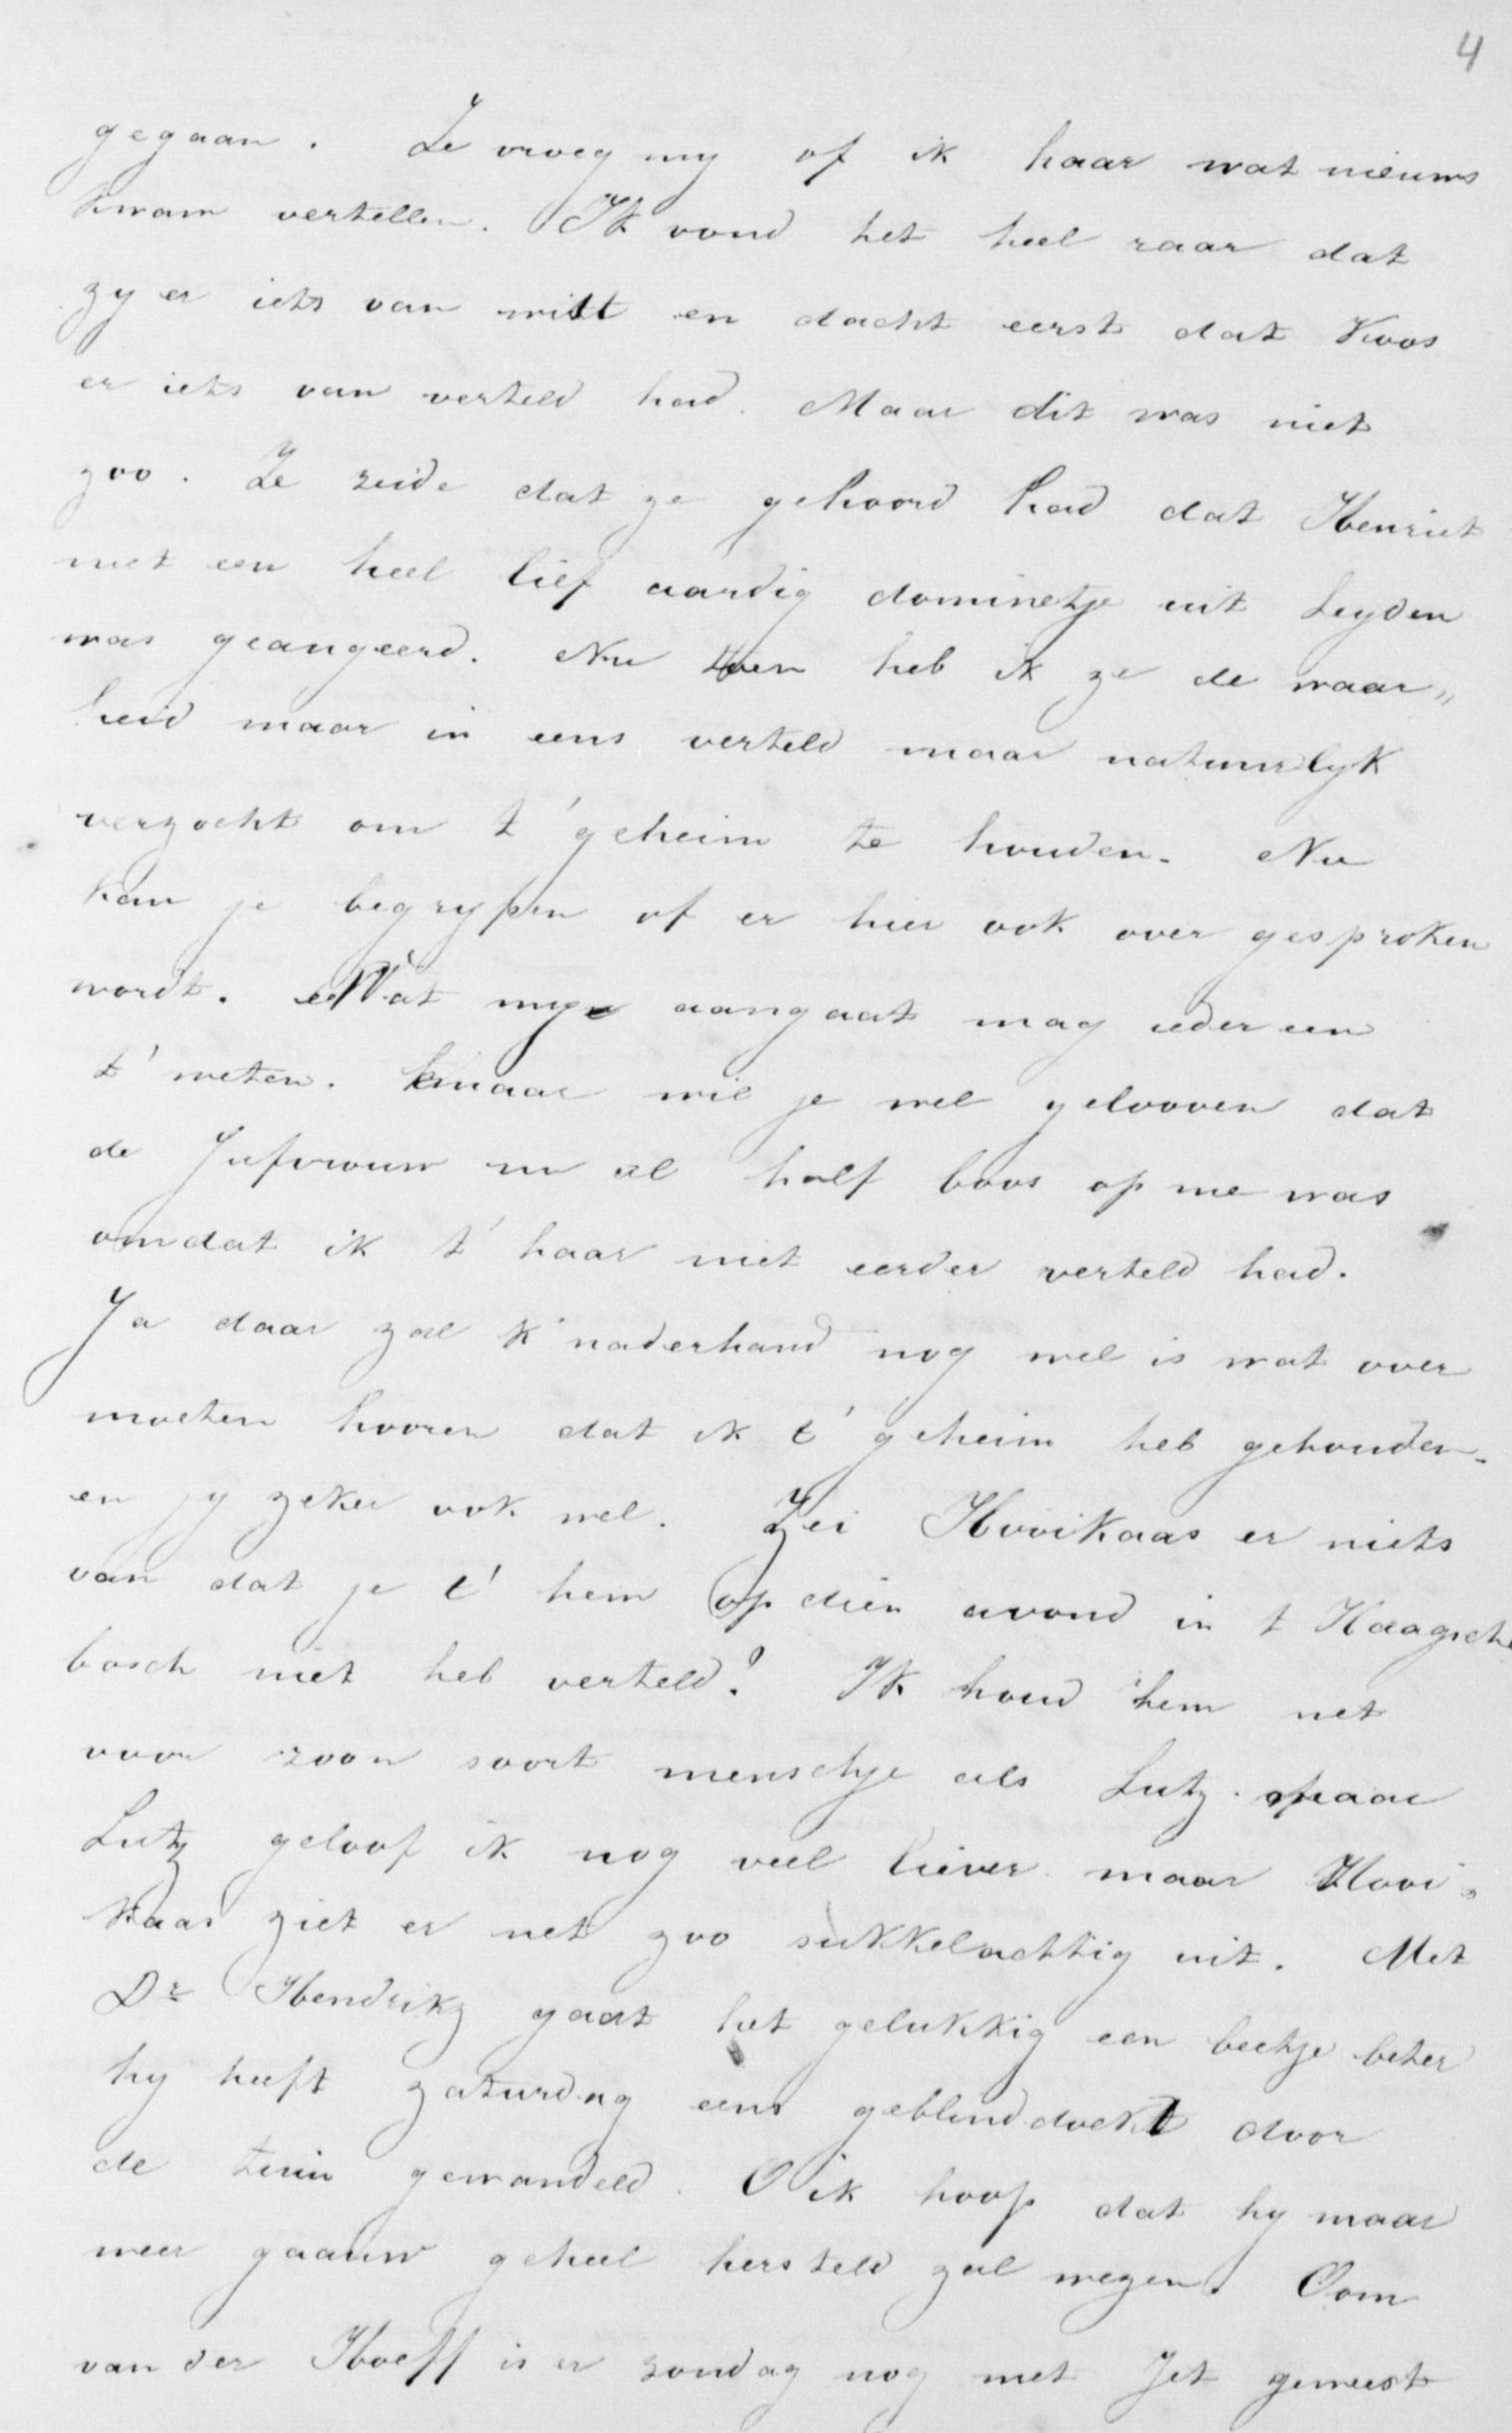 4
gegaan. Ze vroeg my of ik haar wat nieuws
kwam vertellen. Ik vond het heel raar dat
zy er iets van wist en dacht eerst dat Koos
er iets van verteld had. Maar dit was niet
zoo. Ze zeide dat ze gehoord had dat Henriet
met een heel lief aardig dominetje uit Leyden
was geangeerd. Nu toen heb ik ze de waar„
heid maar in eens verteld maar natuurlyk
verzocht om t' geheim te houden. Nu
kan je begrypen of er hier ook over gesproken
wordt. Wat my aangaat mag iedereen
t' weten. maar wil je wel gelooven dat
de Jufvrouw nu al half boos op me was
omdat ik t' haar niet eerder verteld had.
Ja daar zal k' naderhand nog wel is wat over
moeten hooren dat ik t' geheim heb gehouden.
en jy zeker ook wel. Zei Hooikaas er niets
van dat je t' hem op dien avond in t Haagsche
bosch niet heb verteld? Ik houd hem net
voor zoon soort menschje als Lutz. maar
Lutz geloof ik nog veel liever maar Hooi„
kaas ziet er net zoo sukkelachtig uit. Met
Dr Hendrikz gaat het gelukkig een beetje beter
hy heeft zaturdag eens geblinddoekt door
de tuin gewandeld. O ik hoop dat hy maar
weer gaauw geheel hersteld zal wezen. Oom
van der Hoeff is er zondag nog met Jet geweest